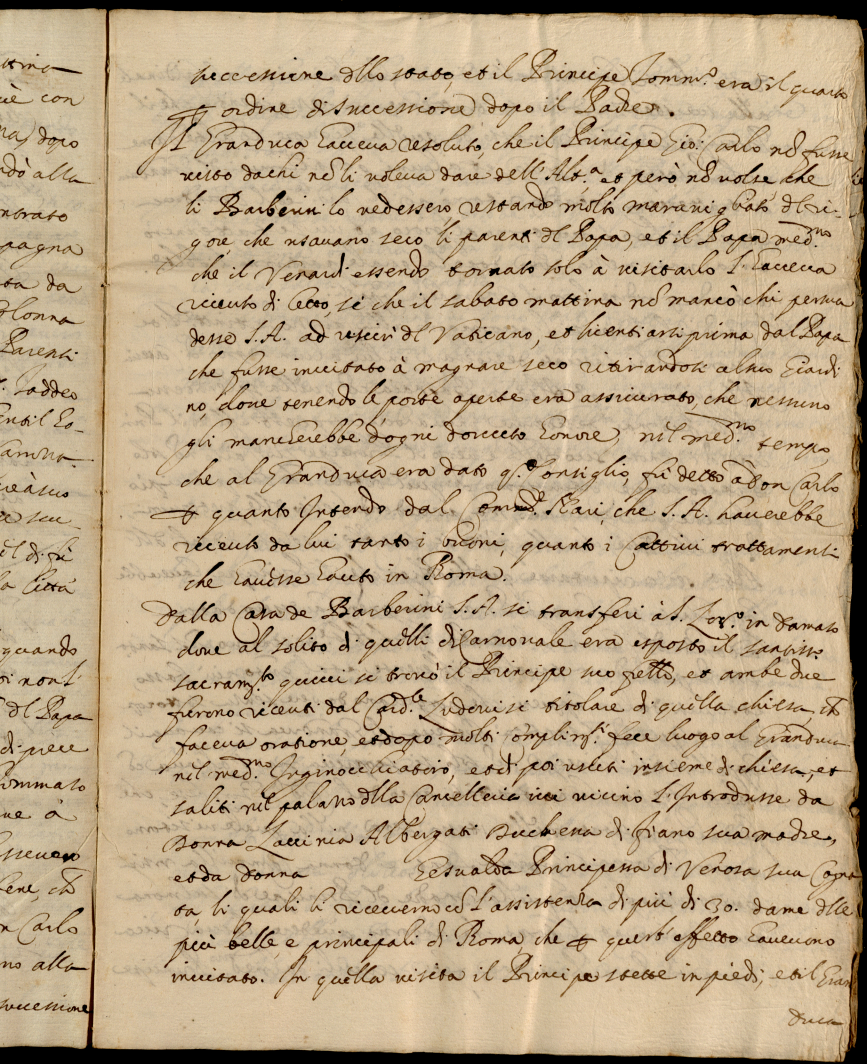 ttina
è con
na, dopo
ndò alla
ntrato
pagna
ta da
olonna
Parenti
Taddeo
entil Eo-
il di fù
la Città
quando
di non
dl Papa
di pece
ommato
ue à
ssever
bene, ch
n Carlo
no alla
successione
successione dllo stato, et il Principe Tomm.o era il quarto
ordine di successione dopo il Padre.
Il Granduca Eaveva resoluto, che il Principe Gio: Carlo nõ fusse
visto da chi nõ li voleva dare dell' Alt.a et però nõ volse che
li Barberini lo vedessero restando molto maravigliato dl ri-
gore, che usavano seco li parenti dl Papa, et il Papa med.mo
che il Venardi essendo tornato solo à visitarlo l'Eaveva
ricevuto di letto, sì che il sabato mattina nõ mancò chi persua
desse S.A. ad uscir dl Vaticano, et licentiarsi prima dal Papa
che fusse invitato à magnare seco ritirandosi al suo Giardi
no, dove tenendo le porte aperte era assicurato, che nessuno
gli mancEerebbe d'ogni dovuto Eonore, nil med.mo tempo
che al Granduca era dato q.o Consiglio, fù detto à Don Carlo
quanto Intendo dal Com.r che S.A. haverebbe
ricevuto da lui tanto i buoni, quanto i Cattivi trattamenti
che Eavesse Eauto in Roma.
Dalla Casa de Barberini S.A. si transferì à S. Lor.o in Damaso
dove al solito di quelli di Carnovale era esposto il santiss.o
sacram.to quivi si trovò il Principe suo frẽllo, et ambe due
furono ricevuti dal Card.le Ludovisi titolare di quella chiesa, ch
faceva oratione, et dopo molti complim.ti fece luogo al Granduca
nil med.mo Inginocchiatorio, et di poi usciti insieme di chiesa, et
saliti nil palazzo dlla Cancelleria ivi vicino l'Introdusse da
Donna Lavinia Albergati Duchessa di fiano sua madre,
et da Donna Gesualda Principessa di Venosa sua Cogna
ta, li quali li riceverno cõ l'assistenza di più di 30. dame dlle
più belle, e principali di Roma, che quest' effetto Eavevono
invitato. In quella visita il Principe stette in piedi, et il Gran
duca